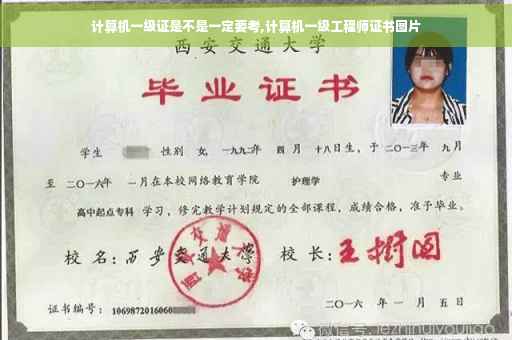 计算机一级证是不是一定要考,计算机一级工程师证书图片
西安交通大学
毕业证书
学生 性别 女, 一九九二年 四 月 十八日生, 于 二〇一三年 九月
至 二〇一六年 一月在本校网络教育学院 护理学 专业
高中起点专科 学习, 修完教学计划规定的全部课程, 成绩合格, 准予毕业。
校 名: 西安交通大学 校 长: 王树国
证书编号: 1069872016060
二〇一六 年 一 月 五 日
微信号: jezhihuiyoujiao